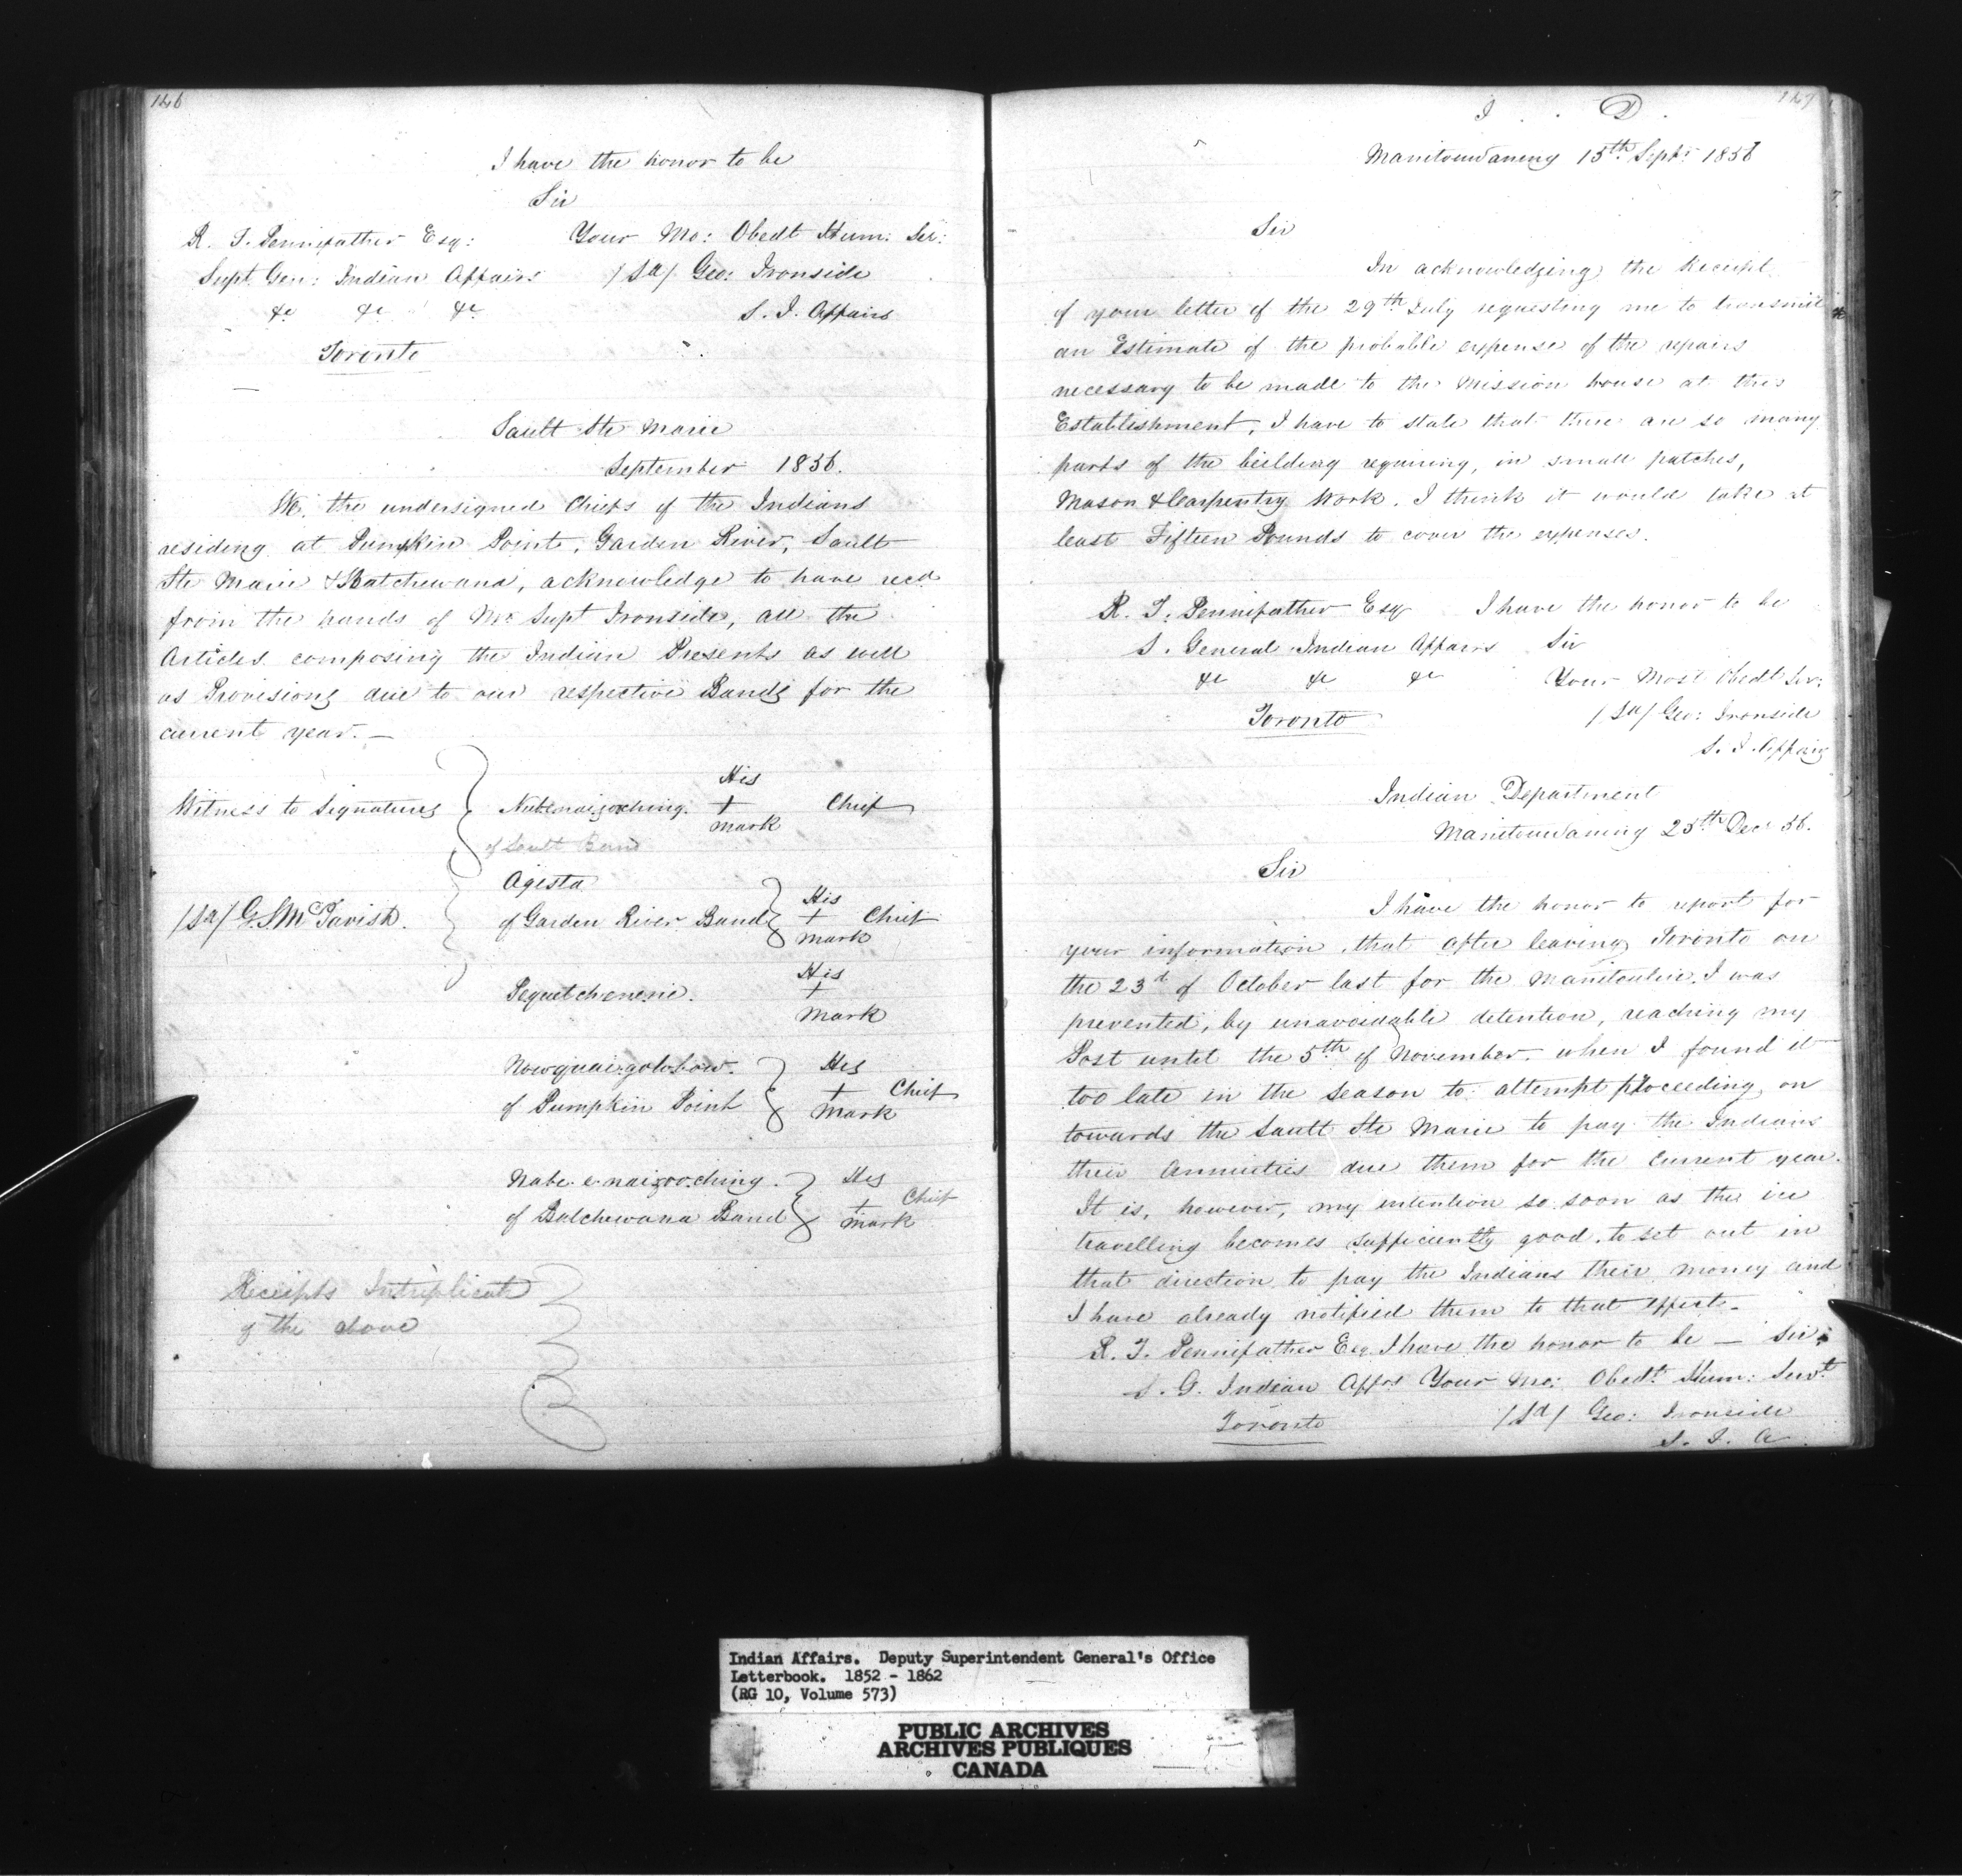 146
I have the honor to be
Sir
R. T. Pennefather Esq: Your Mo: Obedt Hum: Ser:
Supt Gen: Indian Affairs /Sd/ Geo: Ironside
&c &c &c S. I. Affairs
Toronto
Sault Ste Marie
September 1856.
We, the undersigned Chiefs of the Indians
residing at Pumpkin Point, Garden River, Sault
Ste Marie & Batchewana, acknowledge to have recd
from the hands of Mr Supt Ironside, all the
Articles composing the Indian Presents as well
as Provisions due to our respective Bands for the
current year. —
Witness to Signatures
Nabenaigooching. His + mark Chief
of Sault Band
/Sd/ G. S. McTavish.
Agista
of Garden River Band His + mark Chief
Pequetchenene. His + mark
Nowquaigowbow. His + mark Chief
of Pumpkin Point
Nabe.e.naigoo.ching. His + mark Chief
of Batchewana Band
Receipts Intriplicate
of the above
147
I . D .
Manitowaning 15th Sept: 1856
Sir
In acknowledging the Receipt
of your letter of the 29th July requesting me to transmit
an Estimate of the probable expense of the repairs
necessary to be made to the Mission house at this
Establishment, I have to state that there are so many
parts of the building requiring, in small patches,
Mason & Carpentry Work. I think it would take at
least Fifteen Pounds to cover the expenses.
R. T. Pennefather Esq I have the honor to be
S. General Indian Affairs Sir
&c &c &c Your Most Obedt Ser:
Toronto /Sd/ Geo: Ironside
S. I. Affairs
Indian Department
Manitowaning 25th Decr 56.
Sir
I have the honor to report for
your information, that after leaving Toronto on
the 23d of October last for the Manitoulin, I was
prevented, by unavoidable detention, reaching my
Post until the 5th of November. when I found it
too late in the season to attempt proceeding on
towards the Sault Ste Marie to pay the Indians
their Annuities due them for the current year.
It is, however, my intention so soon as the ice
travelling becomes sufficiently good, to set out in
that direction to pay the Indians their money and
I have already notified them to that effect —
R. T. Pennefather Esq I have the honor to be — Sir;
S. G. Indian Affrs Your Mo: Obedt Hum: Servt
Toronto /Sd/ Geo: Ironside
S. I. A.
Indian Affairs. Deputy Superintendent General's Office
Letterbook. 1852 - 1862
(RG 10, Volume 573)
PUBLIC ARCHIVES
ARCHIVES PUBLIQUES
CANADA